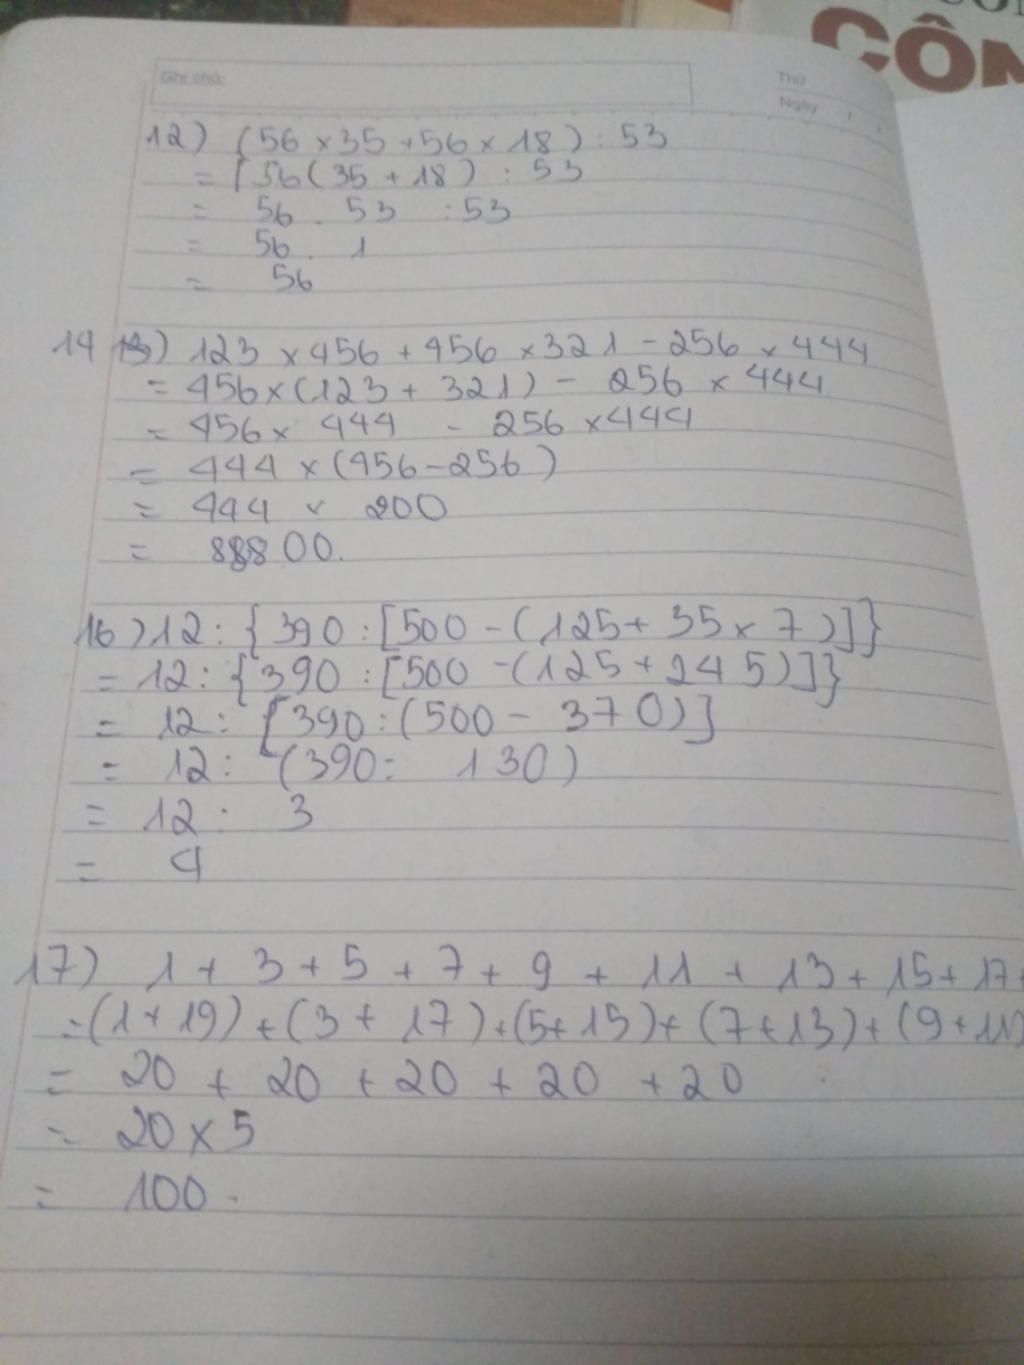 CÔN
Ghi chú:
Thứ
Ngày / /
12) (56 × 35 + 56 × 18) : 53
= [56(35 + 18) : 53
= 56 . 53 : 53
= 56 . 1
= 56
14 13) 123 × 456 + 456 × 321 - 256 × 444
= 456 × (123 + 321) - 256 × 444
= 456 × 444 - 256 × 444
= 444 × (456 - 256)
= 444 × 200
= 88800.
16) 12 : {390 : [500 - (125 + 35 × 7)]}
= 12 : {390 : [500 - (125 + 245)]}
= 12 : [390 : (500 - 370)]
= 12 : (390 : 130)
= 12 : 3
= 4
17) 1 + 3 + 5 + 7 + 9 + 11 + 13 + 15 + 17 +
= (1 + 19) + (3 + 17) + (5 + 15) + (7 + 13) + (9 + 11)
= 20 + 20 + 20 + 20 + 20
= 20 × 5
= 100.